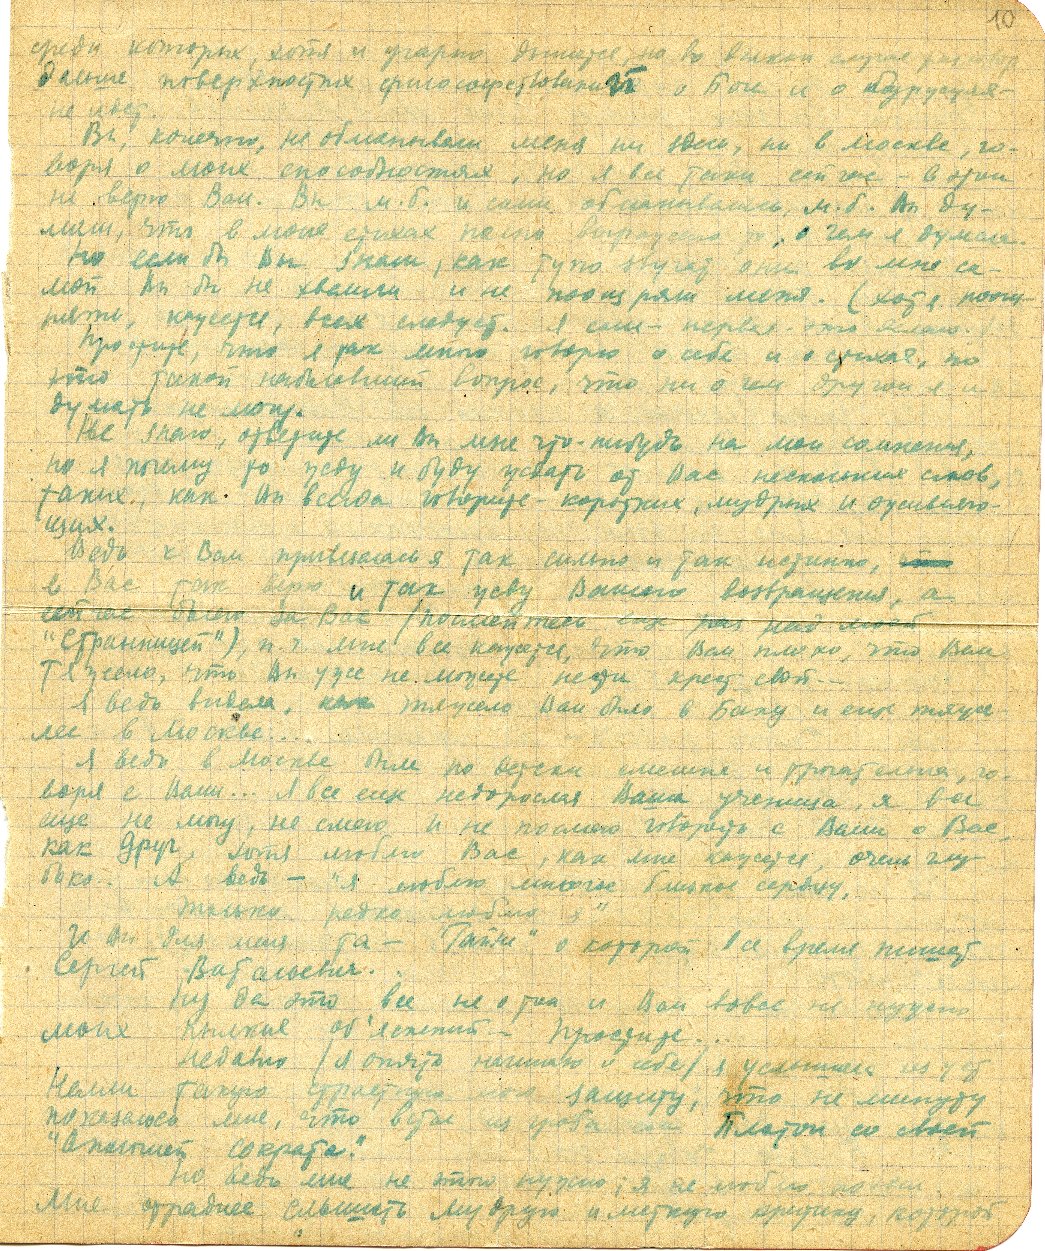 10
среди которых, хотя и угарно дышится, но во всяком случае
дальше поверхностных философствований о Боге и о
не идет.
Вы, конечно, не обманывали меня ни здесь, ни в Москве, го-
воря о моих способностях, но я все таки сейчас - в этом
не верю Вам. Вы м.б. и сами обманывались, м.б. Вы ду-
маете, что в моих стихах полно выражено то, о чем я думаю.
Но если бы Вы знали, как тупо звучат они во мне са-
мой Вы бы не хвалили и не поощряли меня. (хотя поощ-
рять, кажется, всех следует. Я сама - первая это делаю.
Простите, что я так много говорю о себе и о стихах, но
это такой наболевший вопрос, что ни о чем другом я и
думать не могу.
Не знаю, ответите ли Вы мне что-нибудь на мои сомнения,
но я почему то жду и буду ждать от Вас нескольких слов,
таких, как Вы всегда говорите - коротких, мудрых и оживляю-
щих.
Ведь к Вам привязалась я так сильно и так истинно,
в Вас так верю и так жду Вашего возвращения, а
сейчас боюсь за Вас (посмейтесь еще раз над моей
"Странницей"), п.ч. мне все кажется, что Вам плохо, что Вам
тяжело, что Вы уже не можете нести крест свой --
Я ведь видела, как тяжело Вам было в Баку и еще тяже-
лее в Москве...
Я ведь в Москве была по детски смешна и трогательна, го-
воря с Вами... Я все еще недорослая Ваша ученица, я все
еще не могу, не смею и не посмею говорить с Вами о Вас,
как друг, хотя люблю Вас, как мне кажется, очень глу-
боко. А ведь - "Я люблю многое близкое сердцу,
Только редко люблю я"
И Вы для меня та - "Тайна" о которой все время пишет
Сергей Витальевич..
Ну да это все не о том и Вам вовсе не нужно
моих пылких об'яснений - Простите...
Недавно (я опять начинаю о себе) я услышала из уст
Нелли такую страстную мою защиту, что не минуту
показалось мне, что встал из гроба сам Платон со своей
"Апологией Сократа".
Но ведь мне не это нужно; я не люблю
Мне отраднее слышать мудрую и меткую критику, которой